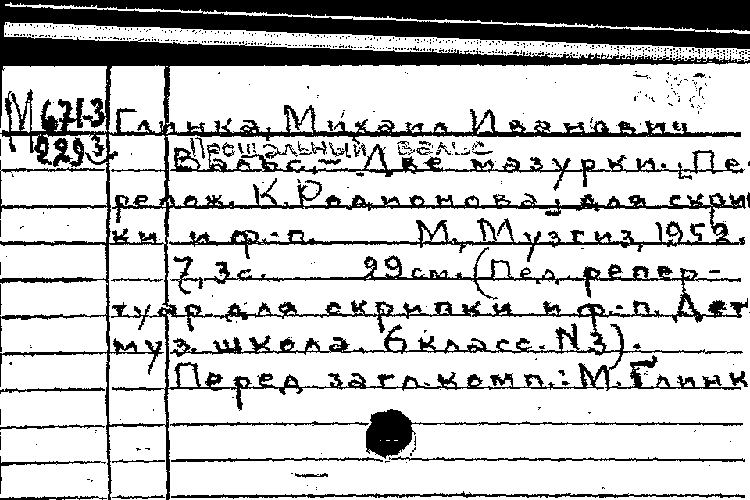 М 671-3
2293
Глинка, Михаил Иванович
Прощальный вальс
Вальс. – Две мазурки. Пе-
релож. К. Родионова для скрип-
ки и ф.-п. М., Музгиз, 1952.
7,3 с. 29 см. (Пед. репер-
туар для скрипки и ф.-п. Дет.
муз. школа. 6 класс. N 3).
Перед загл. комп.: М. Глинк